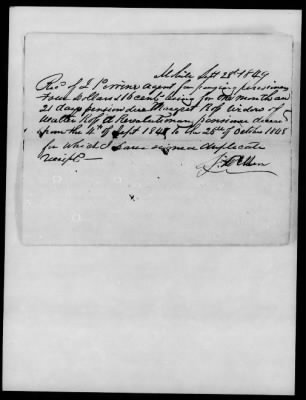 Mobile Sept 28th 1849
Recd of J Perrine agent for paying pensions
Four Dollars & 16 cents being for one month and
21 days pension due Margaret widow of
Walter a Revolutionary pensioner deceased
from the 4th of Sept 1848 to the 25th of October 1848
for which I have signed duplicate
receipts